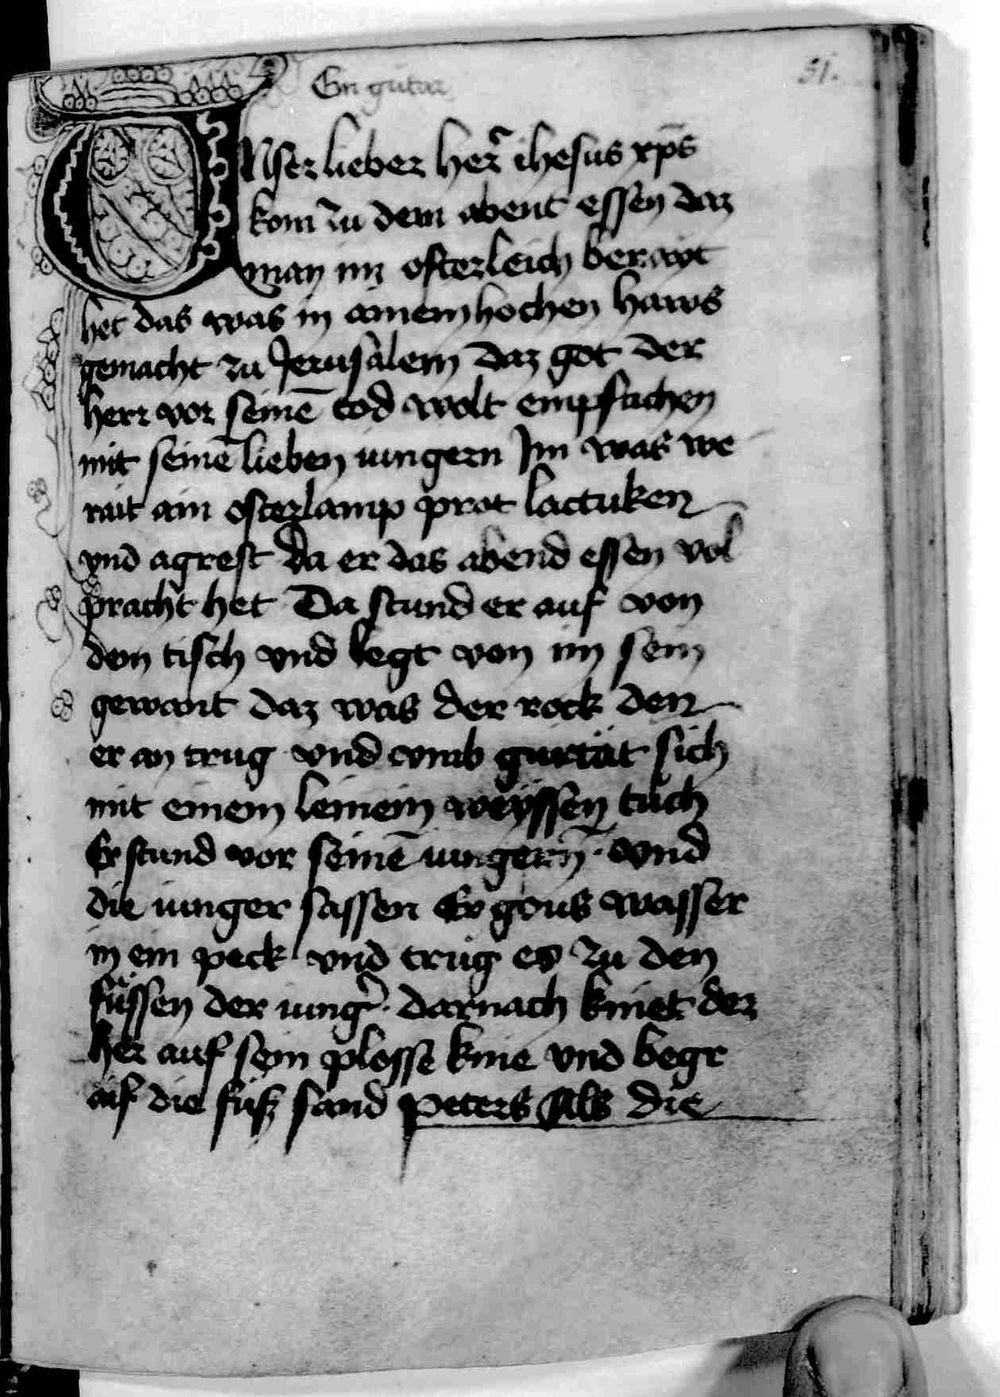 Ein guter
51.
UNser lieber her᷑ ihesus xp̄s
kom zu dem abent essen daz
man im osterleich berayt
het das was in ainem hochen haws
gemacht zu Jerusalem daz got der
herr vor seinē tod wolt empfachen
mit seinē lieben iungern Im was we
rait ain osterlamp prot lactuken
vnd agrest da er das abend essen vol
pracht het Da stund er auf von
dem tisch vnd legt von im sein
gewant daz was der rock den
er an trug vnd vmb gürtät sich
mit einem leinein weyssen tuch
Er stund vor seinē iungern̄ · vnd
die iunger sassen Er gous wasser
in ein peck vnd trug es zu den
füssen der iung᷑ · darnach kniet der
her auf sein plosse knie vnd begr
aif die füß sand peters Als die